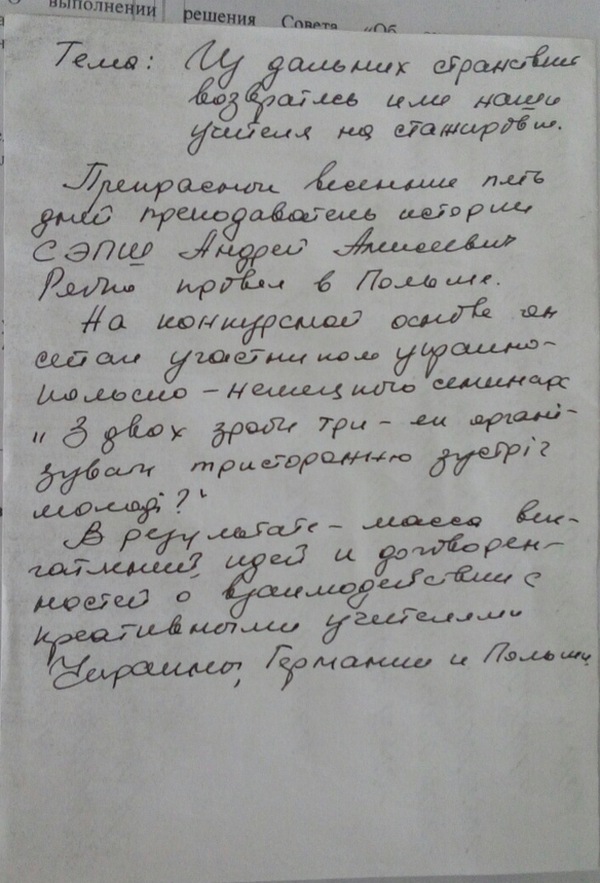 выполнении решения Совета «Об
Тема: Из дальних странствий
возвратясь или наши
учителя на стажировке.
Прекрасных весенние пять
дней преподаватель истории
СЭПШ Андрей Алексеевич
провел в Польше.
На конкурсной основе он
стал участником украино-
польско-немецкого семинара
„З двох зроби три - як органі-
зувати тристоронню зустріч
молоді?"
В результате - масса впе-
чатлений, идей и договорен-
ностей о взаимодействии с
креативными учителями
Украины, Германии и Польши